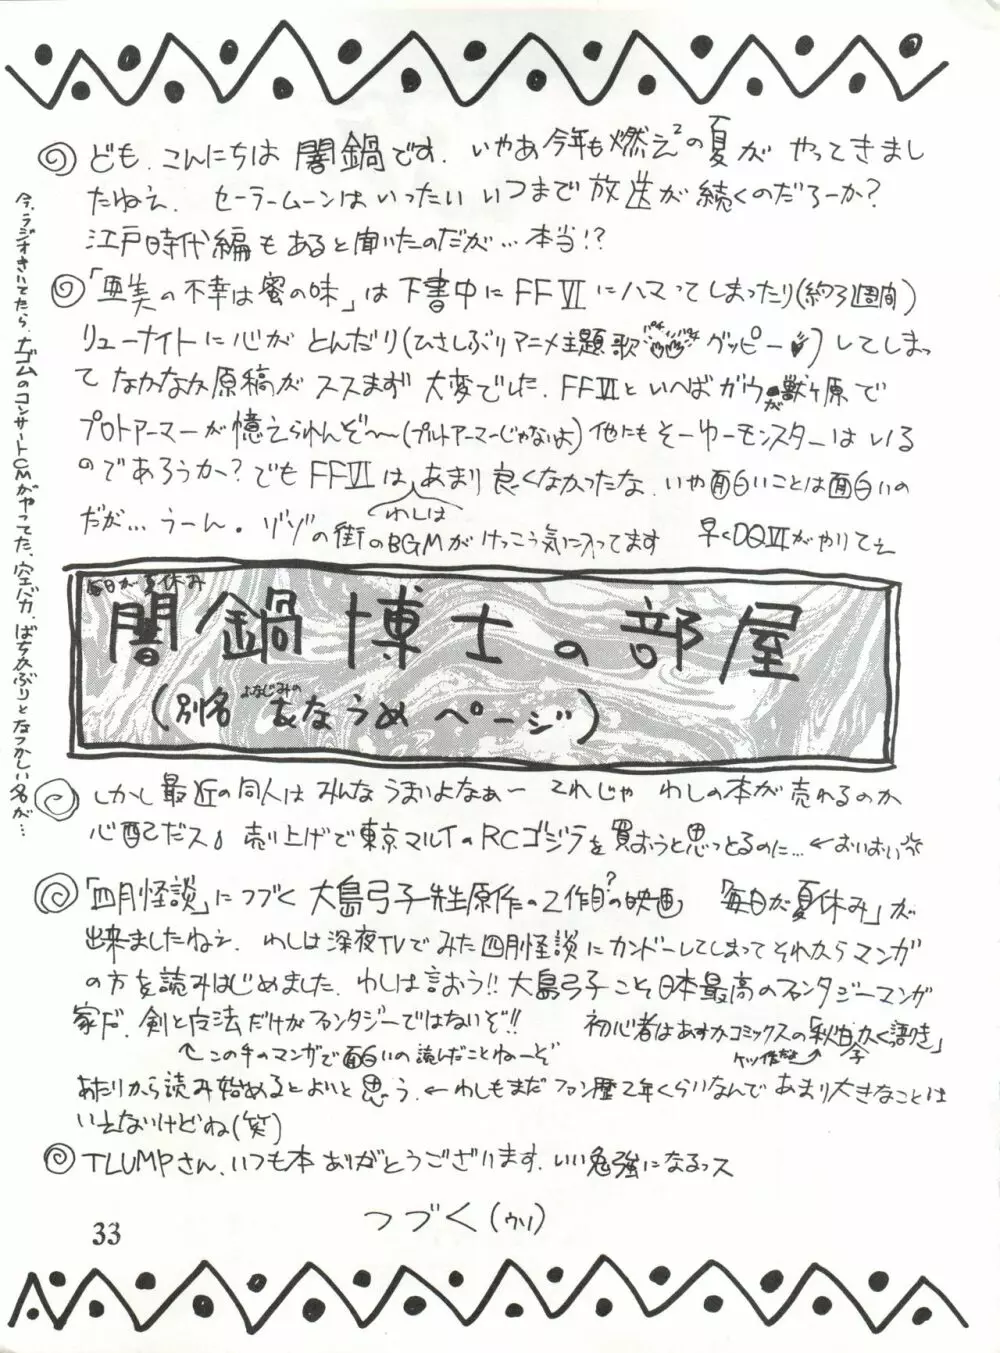 ども、こんにちは 闇鍋です。いやあ今年も燃え²の夏が やってきまし
たねえ、セーラームーンはいったい いつまで 放送が 続くのだろーか?
江戸時代編もあると聞いたのだが…本当!?
「亜美の不幸は蜜の味」は下書中にFFⅥにハマってしまったり(約3週間)
リューナイトに心が とんだり(ひさしぶりアニメ主題歌 パチパチ グッピー)してしまっ
て なかなか原稿が ススまず 大変でした、FFⅥといへばガウが獣ヶ原で
プロトアーマーが憶えられんぞ〜(プルトアーマーじゃないよ)他にもそーゆーモンスターはいる
のであろうか?でもFFⅥはあまり良くなかったな、いや面白いことは面白いの
わしは
だが…うーん。ゾゾの街のBGMがけっこう気に入ってます 早くDQⅥがやりてえ
今、ラジオきいてたら、ナゴムのコンサートCMがやってた、空バカ、ばちかぶりとなつかしい名が…
毎日が夏休み
闇鍋博士の部屋
(別名 よなじみの あなうめ ページ)
しかし最近の同人はみんなうまいよなあー これじゃ わしの本が売れるのか
心配だス」売り上げで東京マルイのRCゴジラを買おうと思っとるのに…←おいおい☆
「四月怪談」につづく 大島弓子先生原作の2作目?の映画 「毎日が夏休み」が
出来ましたねえ、わしは深夜TVでみた四月怪談にカンドーしてしまってそれからマンガ
の方を読みはじめました、わしは言おう!!大島弓子こそ日本最高のファンタジーマンガ
家だ、剣と魔法だけがファンタジーではないぞ!! 初心者はあすかコミックスの「秋日子かく語りき」
↖この手のマンガで面白いの読んだことねーぞ ケッ作だよ↗
あたりから読み始めるとよいと思う、←わしもまだ ファン歴2年くらいなんで あまり大きなことは
いえないけどね(笑)
TLUMPさん、いつも本ありがとうございます、いい勉強になるっス
つづく(ウソ)
33